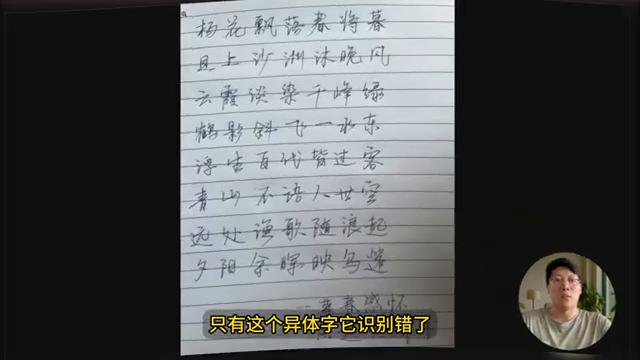 杨花飘落春将暮
且上沙洲沐晚风
云霞淡染千峰绿
鹤影斜飞一水东
浮生百代皆过客
青山不语人世空
远处渔歌随浪起
夕阳余晖映乌篷
暮春感怀
只有这个异体字它识别错了